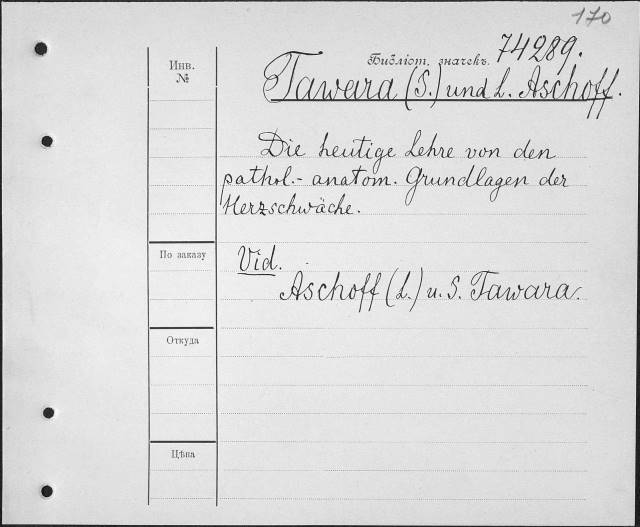 170
Библіот. значекъ. 74289.
Инв.
№
Tawara (S.) und L. Aschoff.
Die heutige Lehre von den
pathol.- anatom. Grundlagen der
Herzschwäche.
По заказу
Vid.
Aschoff (L.) u. S. Tawara.
Откуда
Цѣна